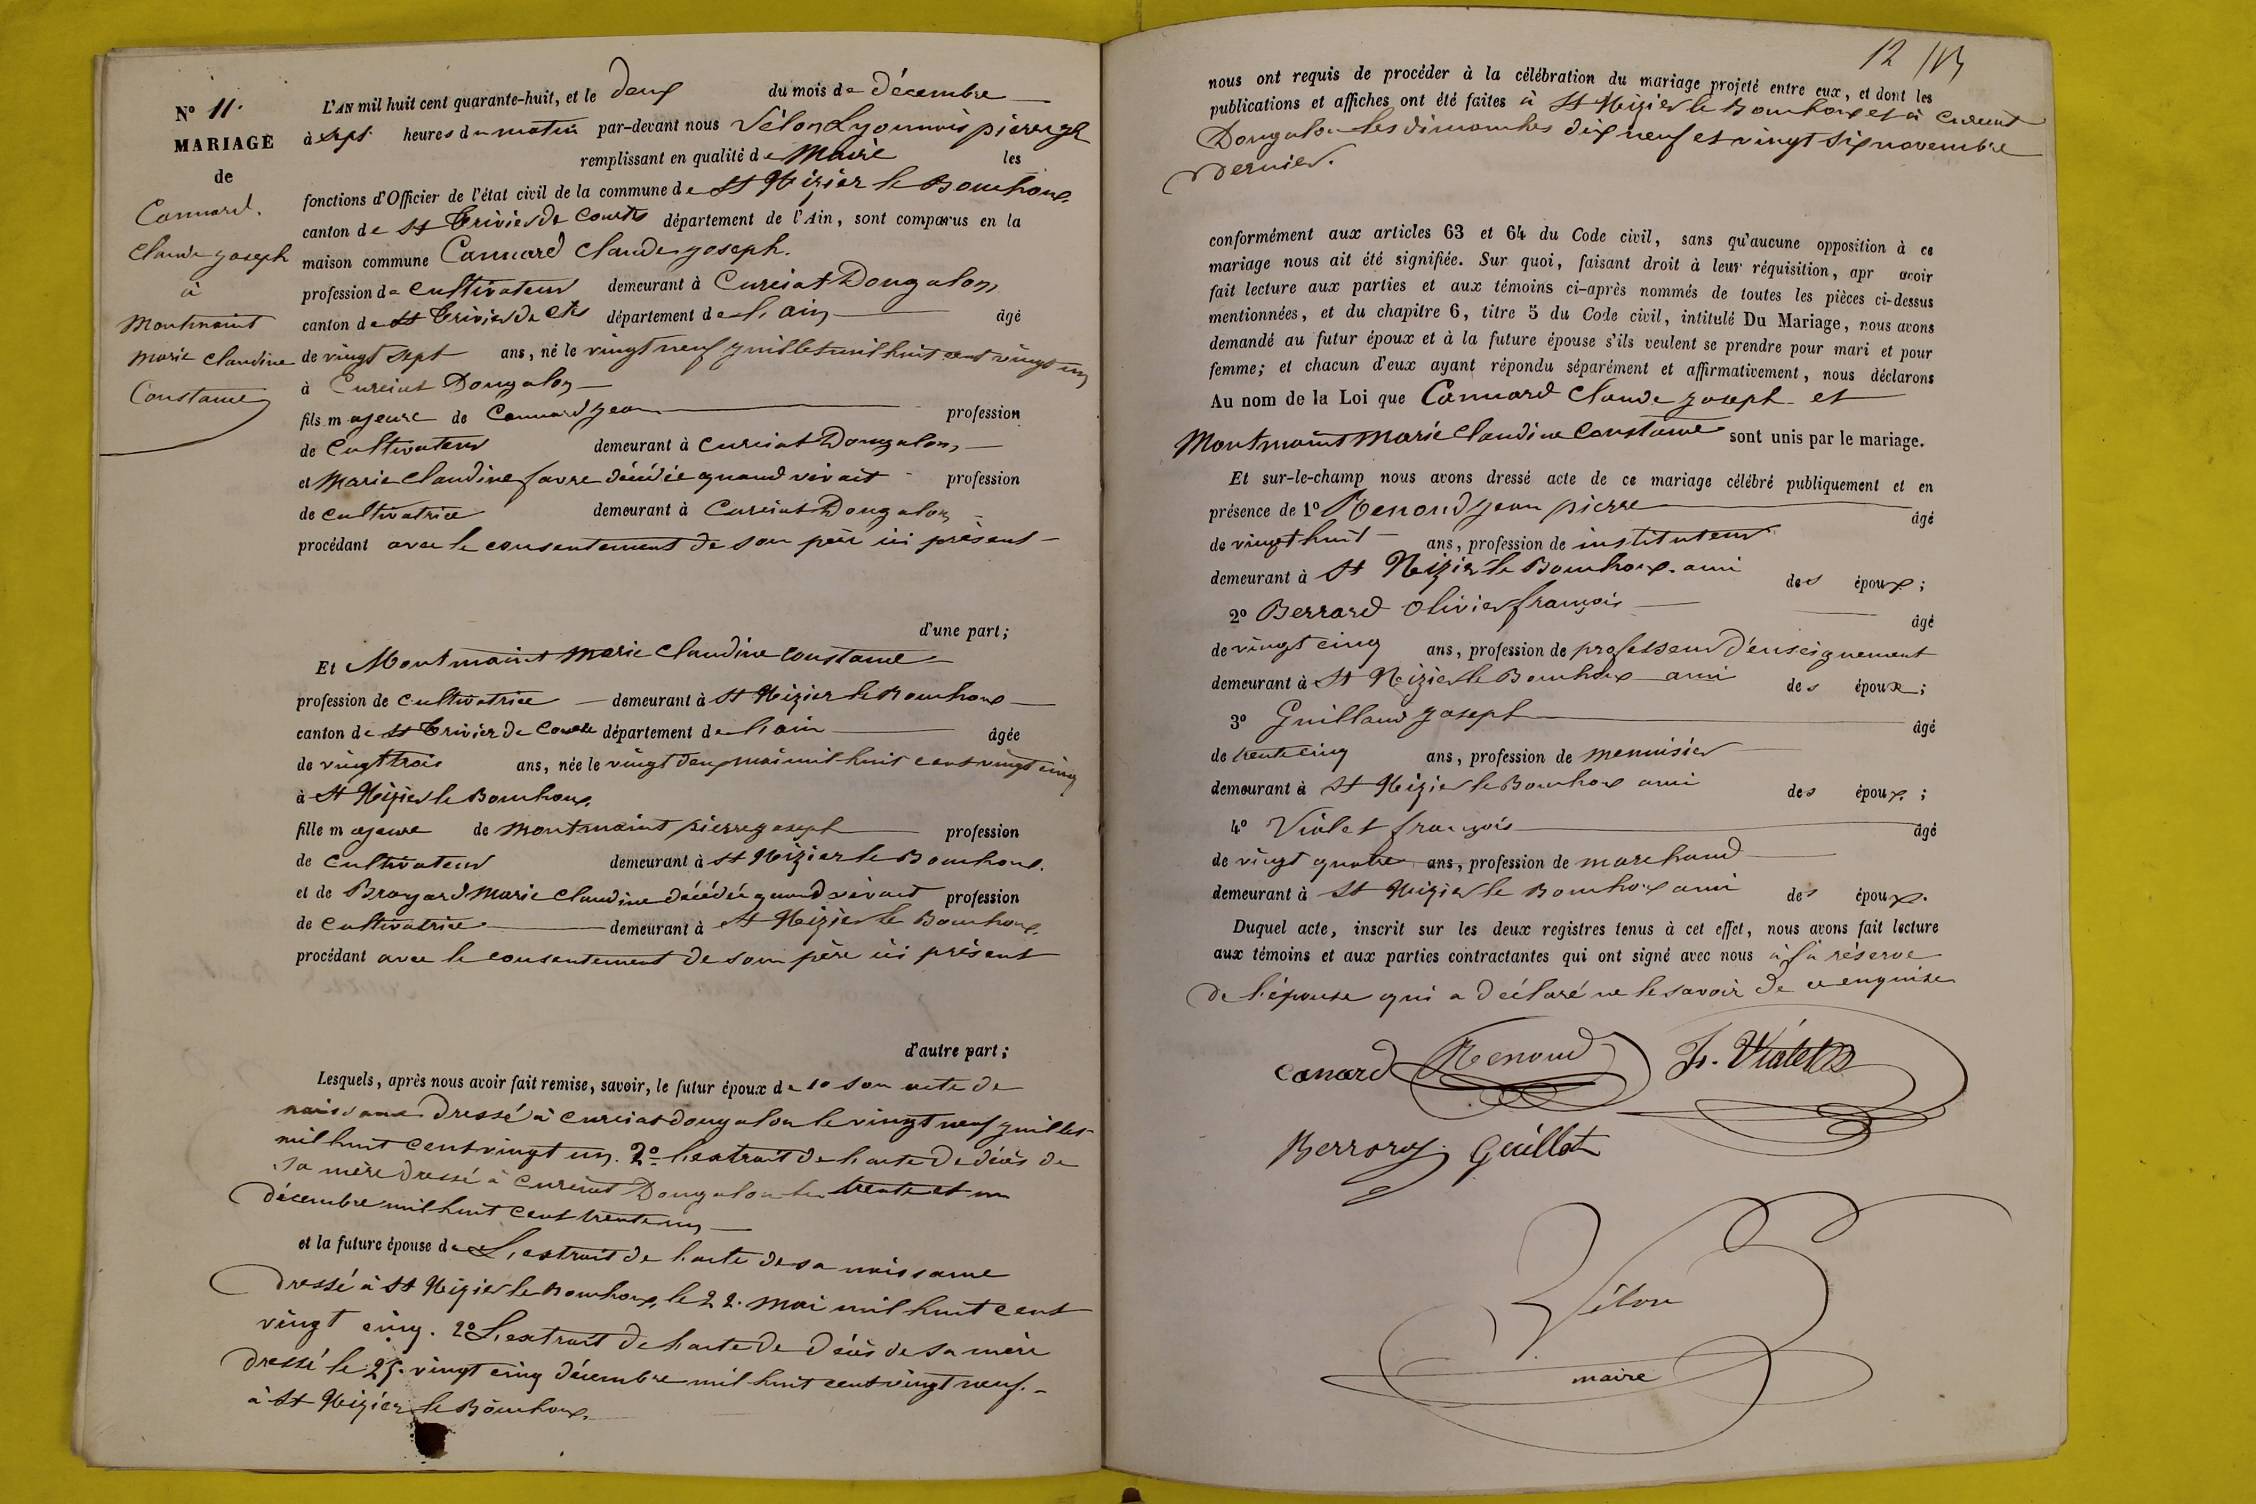 N° 11.
MARIAGE
de
Cannard.
Claude joseph
à
Montmaint
marie Claudine
Constance
L'AN mil huit cent quarante-huit, et le deux du mois de Décembre
à sept heures du matin par-devant nous Vélon Lyonnois pierre
remplissant en qualité de Maire les
fonctions d'Officier de l'état civil de la commune de St Nizier le Bouchoux.
canton de St Trivier de Courtes département de l'Ain, sont comparus en la
maison commune Cannard Claude joseph.
profession de Cultivateur demeurant à Curciat Dongalon
canton de St Trivier de Ctes département de l'ain âgé
de vingt sept ans, né le vingt neuf juillet mil huit cent vingt un
à Curciat Dongalon
fils majeure de Cannard jean profession
de Cultivateur demeurant à Curciat Dongalon
et Marie Claudine favre décédée quand vivait profession
de Cultivatrice demeurant à Curciat Dongalon
procédant avec le consentement de son père ici présent
d'une part;
Et Montmaint Marie Claudine Constance
profession de Cultivatrice demeurant à St Nizier le Bouchoux
canton de St Trivier de Courtes département de l'ain âgée
de vingt trois ans, née le vingt deux mai mil huit cent vingt cinq
à St Nizier le Bouchoux.
fille majeure de Montmaint pierre joseph profession
de Cultivateur demeurant à St Nizier le Bouchoux.
et de Broyard Marie Claudine décédée quand vivait profession
de Cultivatrice demeurant à St Nizier le Bouchoux.
procédant avec le consentement de son père ici présent
d'autre part;
Lesquels, après nous avoir fait remise, savoir, le futur époux de 1° son acte de
naissance dressé à Curciat dongalon le vingt neuf juillet
mil huit cent vingt un. 2° l'extrait de l'acte de décès de
sa mère dressé à Curciat Dongalon le trente et un
décembre mil huit cent trente un
et la future épouse de L'extrait de l'acte de sa naissance
dressé à St Nizier le Bouchoux, le 22. mai mil huit cent
vingt cinq. 2° L'extrait de l'acte de décès de sa mère
dressé le 25. vingt cinq décembre mil huit cent vingt neuf.
à St Nizier le Bouchoux.
12
nous ont requis de procéder à la célébration du mariage projeté entre eux, et dont les
publications et affiches ont été faites à St Nizier le Bouchoux et à Curciat
Dongalon les dimanches dix neuf et vingt six novembre
dernier.
conformément aux articles 63 et 64 du Code civil, sans qu'aucune opposition à ce
mariage nous ait été signifiée. Sur quoi, faisant droit à leur réquisition, apr avoir
fait lecture aux parties et aux témoins ci-après nommés de toutes les pièces ci-dessus
mentionnées, et du chapitre 6, titre 5 du Code civil, intitulé Du Mariage, nous avons
demandé au futur époux et à la future épouse s'ils veulent se prendre pour mari et pour
femme; et chacun d'eux ayant répondu séparément et affirmativement, nous déclarons
Au nom de la Loi que Cannard Claude joseph et
Montmaint Marie Claudine Constance sont unis par le mariage.
Et sur-le-champ nous avons dressé acte de ce mariage célébré publiquement et en
présence de 1° Renoud jean pierre âgé
de vingt huit ans, profession de instituteur
demeurant à St Nizier le Bouchoux. ami des époux;
2° Berrard Olivier françois âgé
de vingt cinq ans, profession de professeur d'enseignement
demeurant à St Nizier le Bouchoux ami des époux;
3° Guillaud joseph âgé
de trente cinq ans, profession de menuisier
demeurant à St Nizier le Bouchoux ami des époux;
4° Violet françois âgé
de vingt quatre ans, profession de marchand
demeurant à St Nizier le Bouchoux ami des époux.
Duquel acte, inscrit sur les deux registres tenus à cet effet, nous avons fait lecture
aux témoins et aux parties contractantes qui ont signé avec nous à la réserve
de l'épouse qui a déclaré ne le savoir de ce enquise
Canard Renoud fr. Violet
Berrard Guillot
Vélon
maire